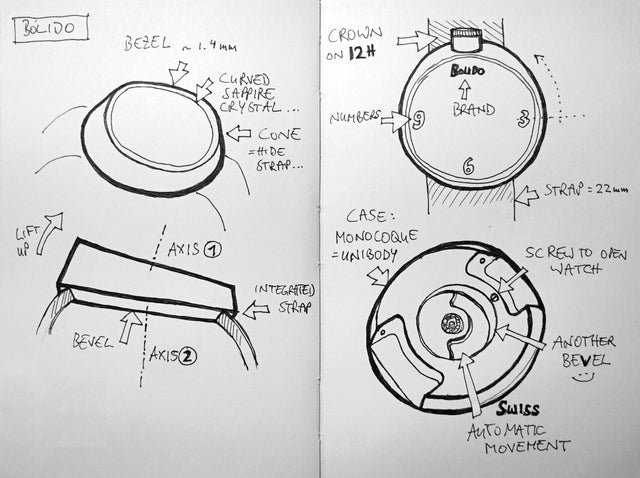 BÓLIDO
BEZEL ~ 1.4mm
CURVED
SAPPIRE
CRYSTAL...
CONE
=HIDE
STRAP...
LIFT
UP
AXIS 1
INTEGRATED
STRAP
BEVEL
AXIS 2
CROWN
ON 12H
BOLIDO
BRAND
NUMBERS
9
3
6
STRAP = 22mm
CASE:
MONOCOQUE
=UNIBODY
SCREW TO OPEN
WATCH
ANOTHER
BEVEL
SWISS
AUTOMATIC
MOVEMENT